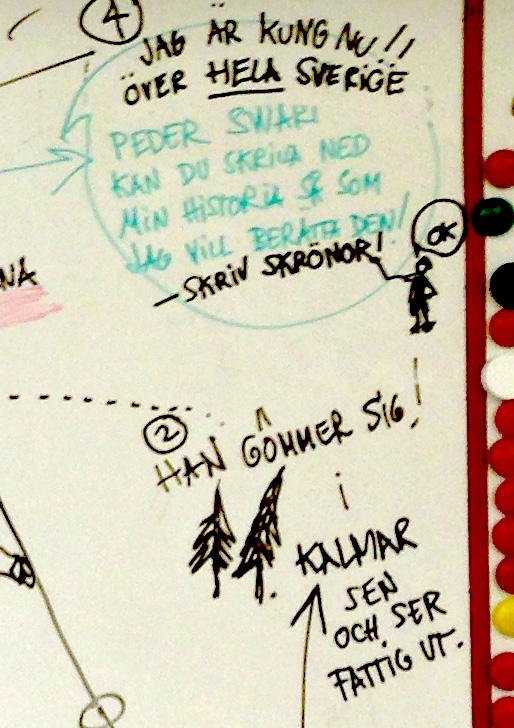 4
JAG ÄR KUNG NU!!
ÖVER HELA SVERIGE
PEDER SWART
KAN DU SKRIVA NED
MIN HISTORIA SOM
JAG VILL BERÄTTA DEN!
- SKRIV SKRÖNOR!
OK
NA
2
HAN GÖMMER SIG!
i
KALMAR
SEN
OCH SER
FATTIG UT.